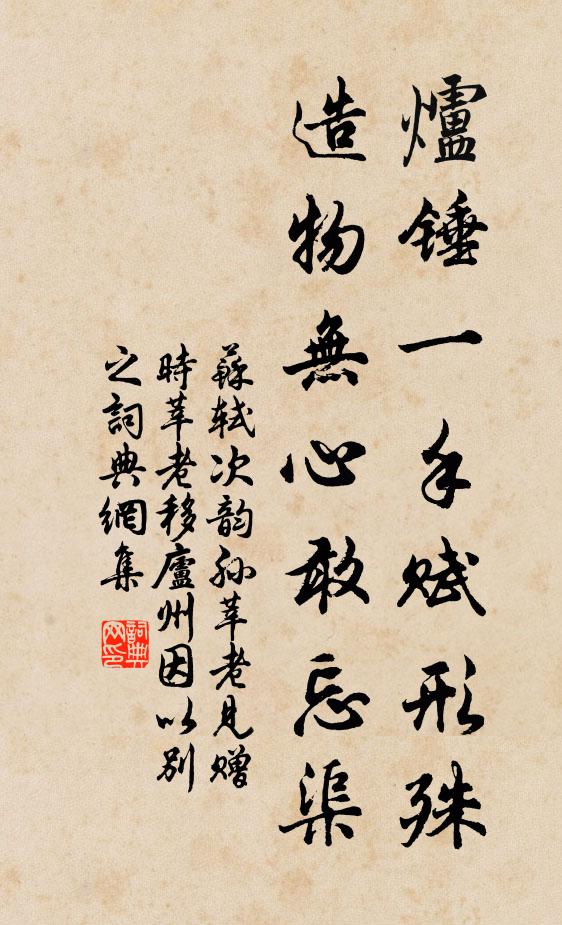 爐錘一手賦形殊
造物無心敢忘渠
蘇軾次韵孫莘老見贈
時莘老移廬州因以別
之詞典網集
詞典
网印